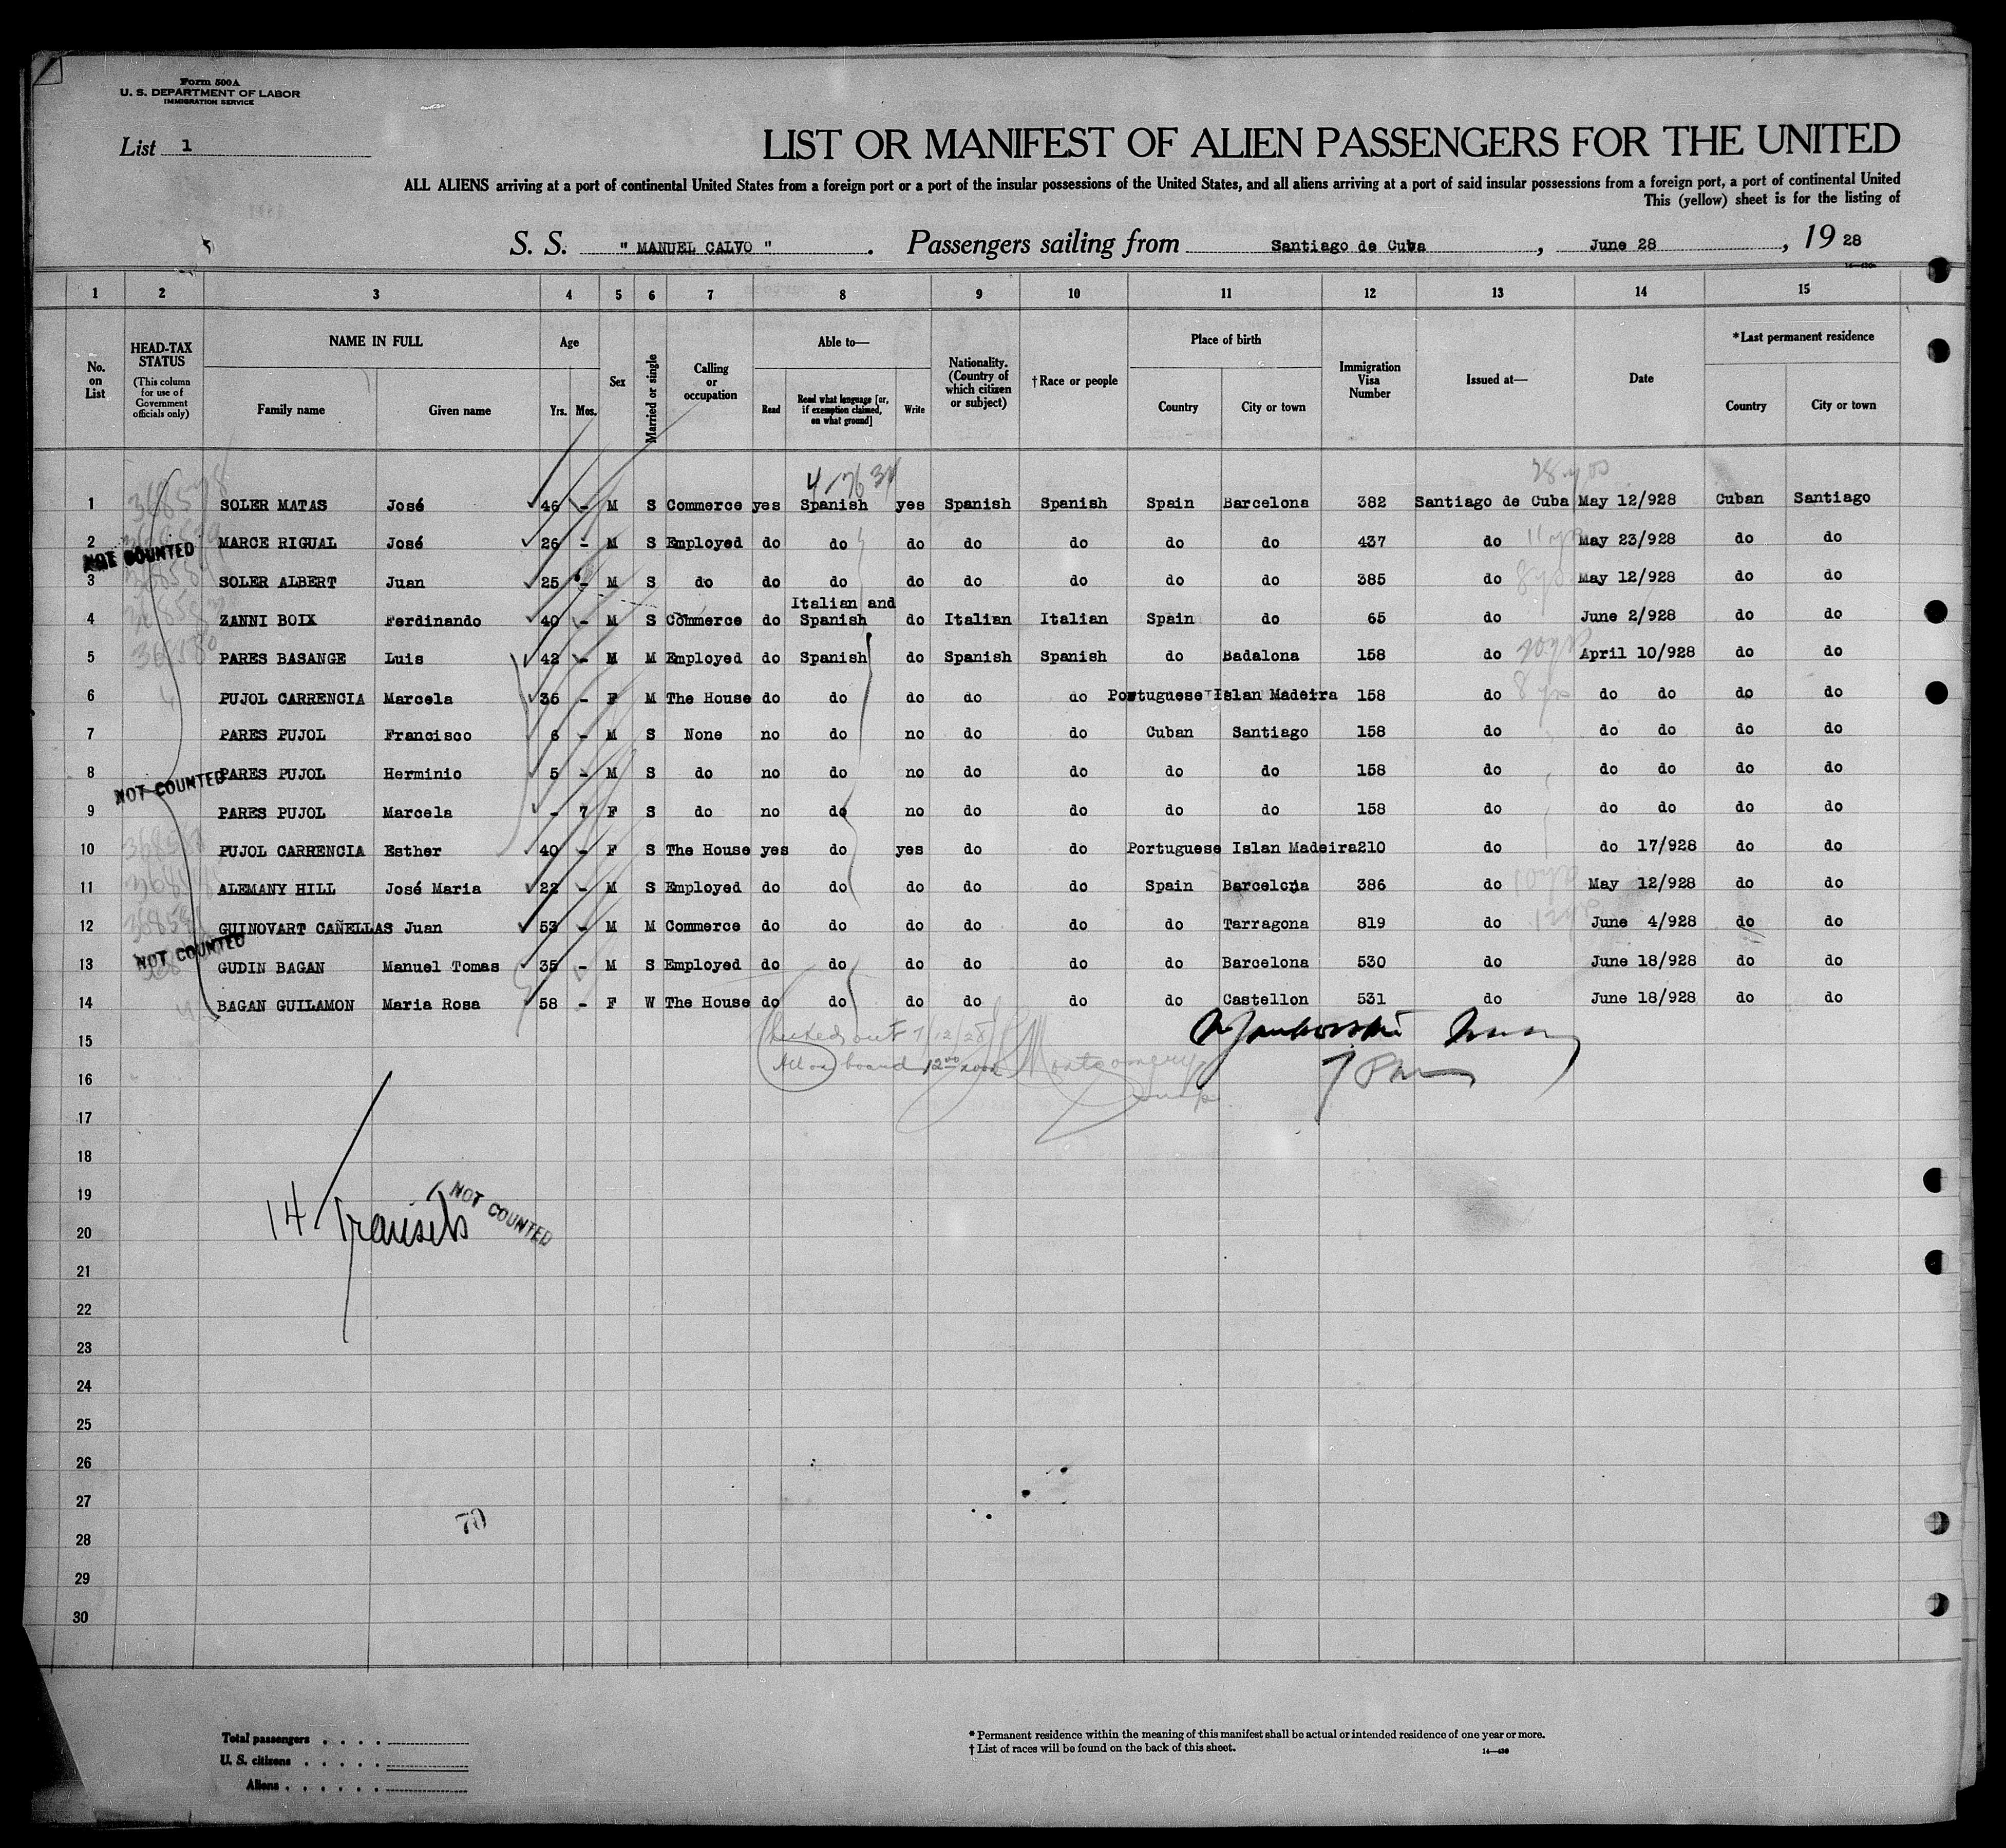 Form 500A
U. S. DEPARTMENT OF LABOR
IMMIGRATION SERVICE
List 1
LIST OR MANIFEST OF ALIEN PASSENGERS FOR THE UNITED
ALL ALIENS arriving at a port of continental United States from a foreign port or a port of the insular possessions of the United States, and all aliens arriving at a port of said insular possessions from a foreign port, a port of continental United
This (yellow) sheet is for the listing of
S. S. " MANUEL CALVO " . Passengers sailing from Santiago de Cuba , June 28 , 19 28
1 2 3 4 5 6 7 8 9 10 11 12 13 14 15
No. on List
HEAD-TAX STATUS
(This column for use of Government officials only)
NAME IN FULL
Family name Given name
Age
Yrs. Mos.
Sex
Married or single
Calling or occupation
Able to—
Read
Read what language [or, if exemption claimed, on what ground]
Write
Nationality. (Country of which citizen or subject)
†Race or people
Place of birth
Country City or town
Immigration Visa Number
Issued at—
Date
*Last permanent residence
Country City or town
1 SOLER MATAS José 46 - M S Commerce yes Spanish yes Spanish Spanish Spain Barcelona 382 Santiago de Cuba May 12/928 Cuban Santiago
2 MARCE RIGUAL José 26 - M S Employed do do do do do do do 437 do May 23/928 do do
NOT COUNTED
3 SOLER ALBERT Juan 25 - M S do do do do do do do do 385 do May 12/928 do do
4 ZANNI BOIX Ferdinando 40 - M S Commerce do Italian and Spanish do Italian Italian Spain do 65 do June 2/928 do do
5 PARES BASANGE Luis 42 - M M Employed do Spanish do Spanish Spanish do Badalona 158 do April 10/928 do do
6 PUJOL CARRENCIA Marcela 36 - F M The House do do do do do Portuguese Islan Madeira 158 do do do do do
7 PARES PUJOL Francisco 6 - M S None no do no do do Cuban Santiago 158 do do do do do
8 PARES PUJOL Herminio 5 - M S do no do no do do do do 158 do do do do do
NOT COUNTED
9 PARES PUJOL Marcela - 7 F S do no do no do do do do 158 do do do do do
10 PUJOL CARRENCIA Esther 40 - F S The House yes do yes do do Portuguese Islan Madeira 210 do do 17/928 do do
11 ALEMANY HILL José Maria 22 - M S Employed do do do do do Spain Barcelona 386 do May 12/928 do do
12 GUINOVART CAÑELLAS Juan 53 - M M Commerce do do do do do do Tarragona 819 do June 4/928 do do
NOT COUNTED
13 GUDIN BAGAN Manuel Tomas 35 - M S Employed do do do do do do Barcelona 530 do June 18/928 do do
14 BAGAN GUILAMON Maria Rosa 58 - F W The House do do do do do do Castellon 531 do June 18/928 do do
15
Checked out 7/12/28
16
All on board 12 00 noon Montgomery
17
18
19
14 Transits NOT COUNTED
20
21
22
23
24
25
26
27
70
28
29
30
Total passengers . . . .
U. S. citizens . . . . .
Aliens . . . . . .
* Permanent residence within the meaning of this manifest shall be actual or intended residence of one year or more.
† List of races will be found on the back of this sheet.
14—430